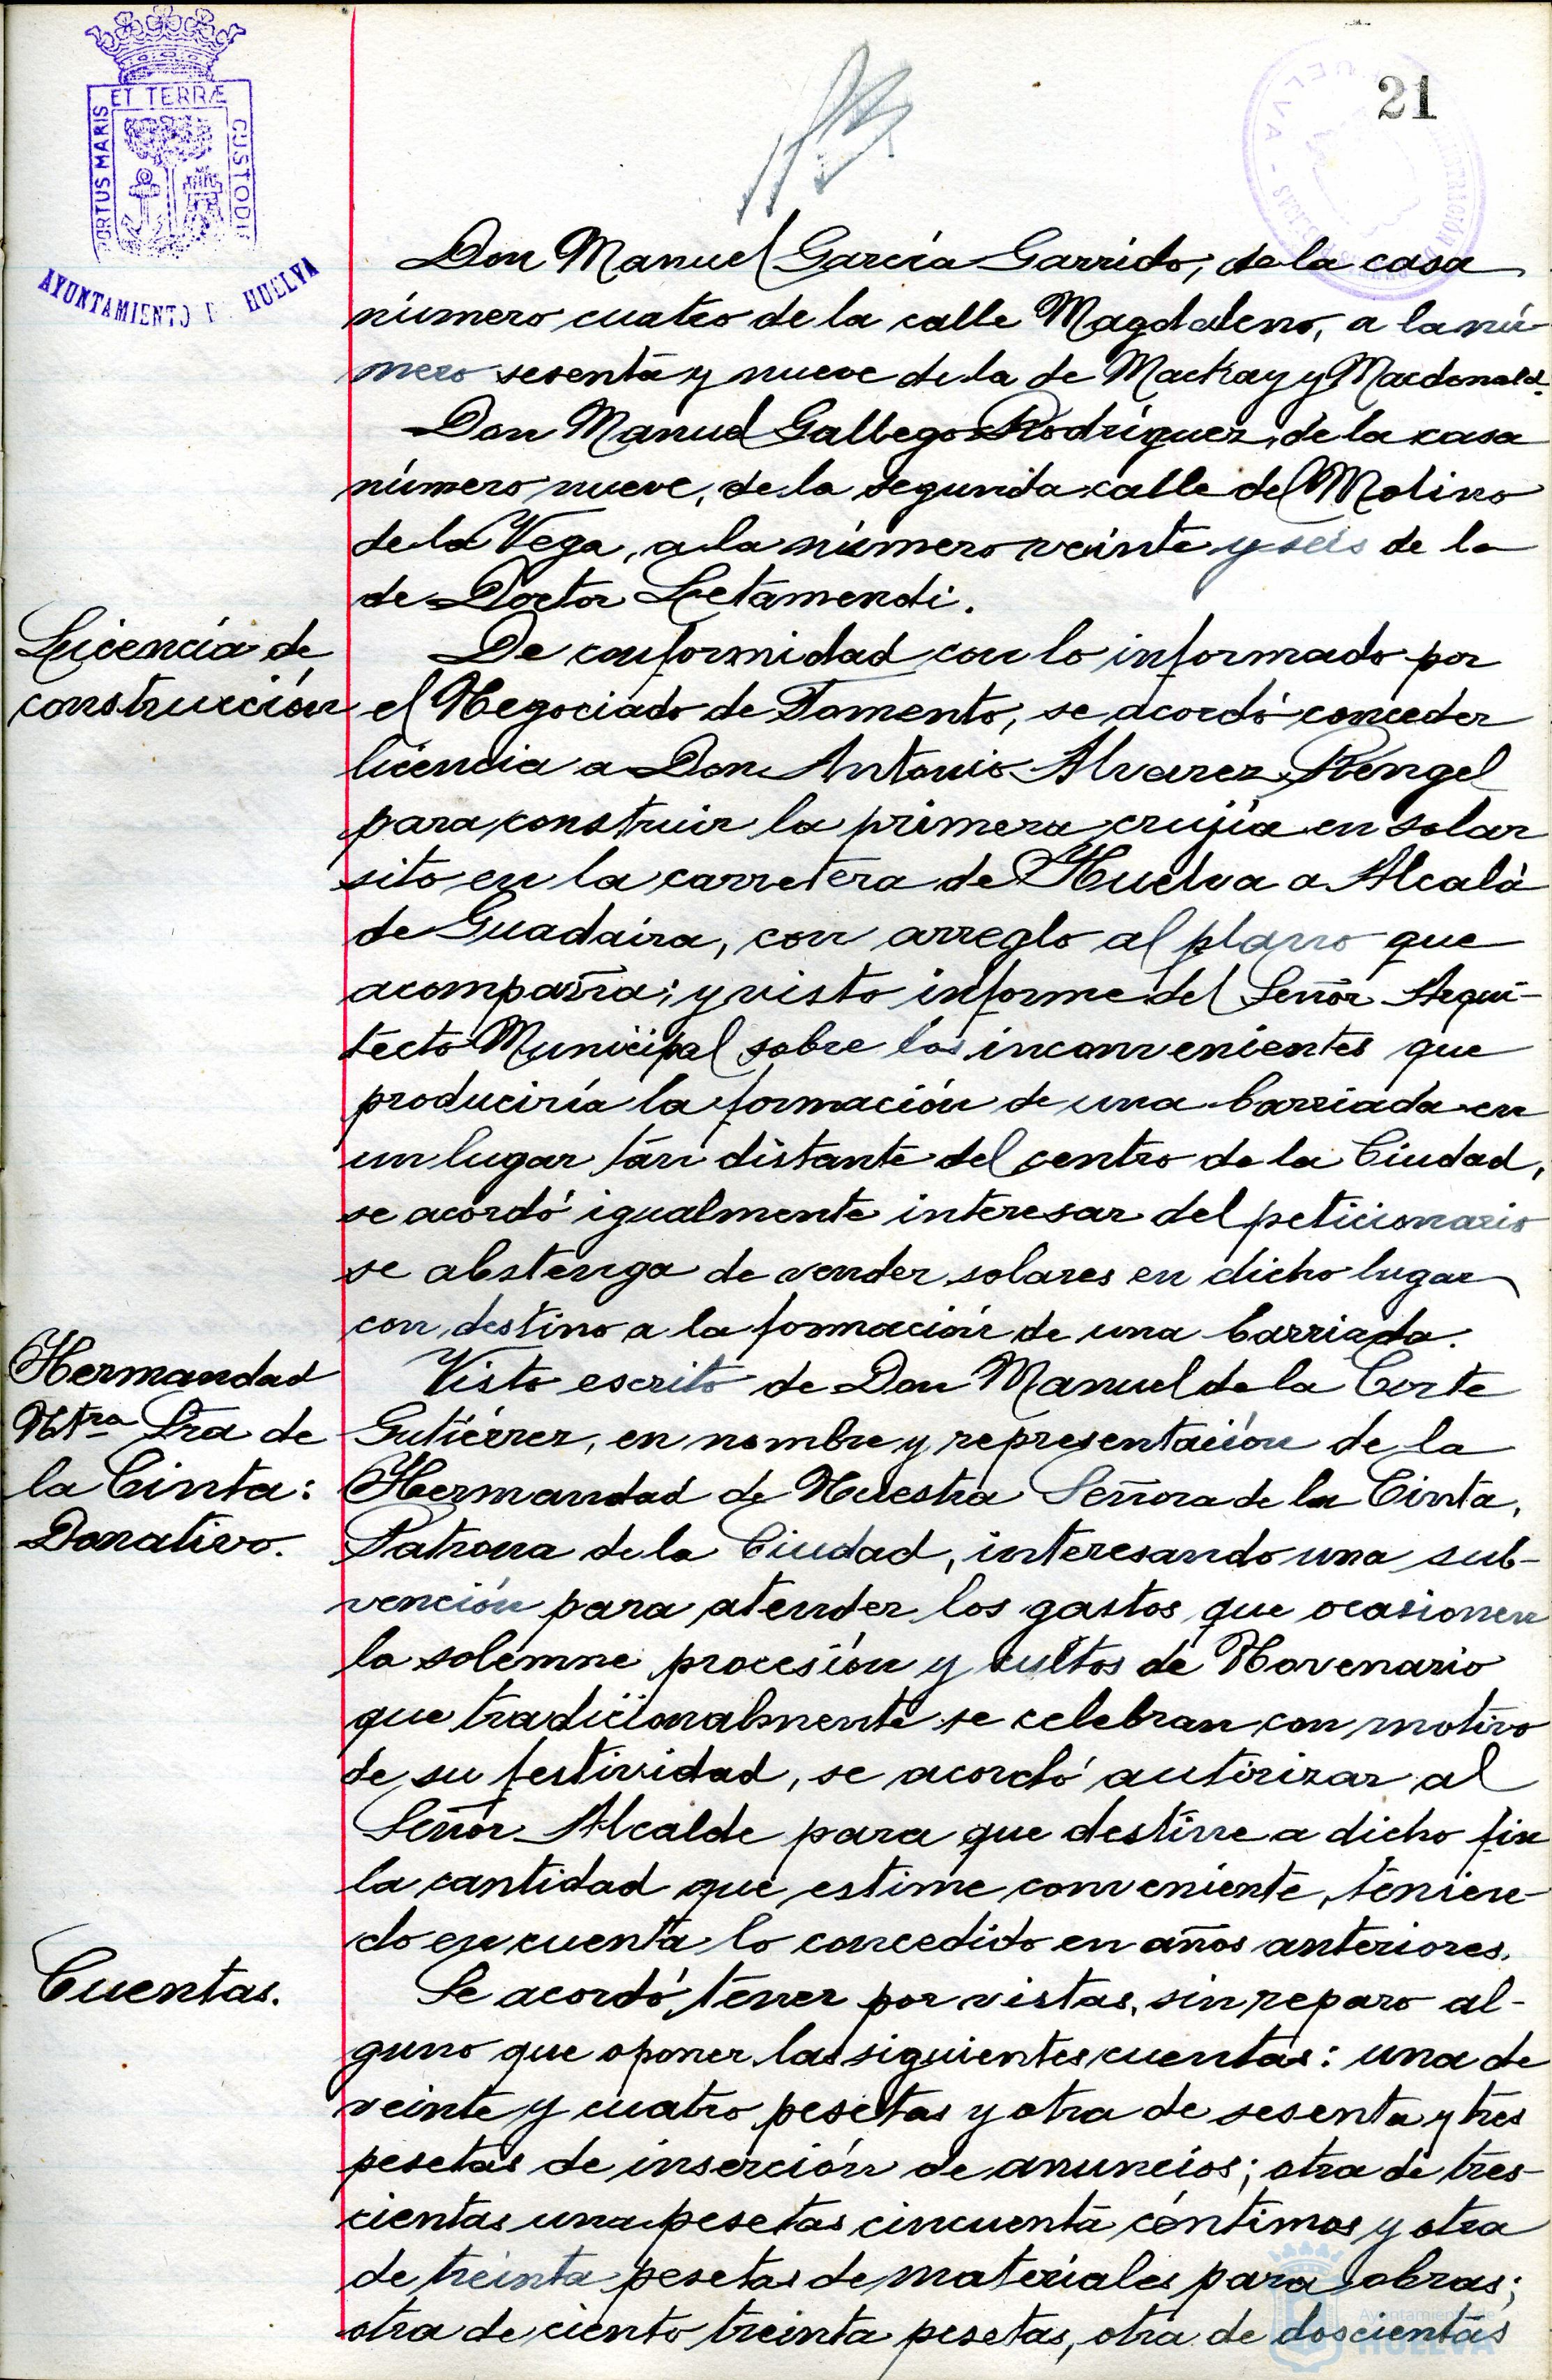 21
PORTUS MARIS
ET TERRÆ
CUSTODIA
AYUNTAMIENTO DE HUELVA
Don Manuel García Garrido, de la casa
número cuatro de la calle Magdalena, a la nú-
mero sesenta y nueve de la de Mackay y Macdonald.
Don Manuel Gallego Rodríguez, de la casa
número nueve, de la segunda calle del Molino
de la Vega, a la número veinte y seis de la
de Doctor Letamendi.
Licencia de
construcción
De conformidad con lo informado por
el Negociado de Fomento, se acordó conceder
licencia a Don Antonio Alvarez Rengel
para construir la primera crujía en solar
sito en la carretera de Huelva a Alcalá
de Guadaira, con arreglo al plano que
acompaña; y visto informe del Señor Arqui-
tecto Municipal sobre los inconvenientes que
produciría la formación de una barriada en
un lugar tan distante del centro de la Ciudad,
se acordó igualmente interesar del peticionario
se abstenga de vender solares en dicho lugar
con destino a la formación de una barriada.
Hermandad
Ntra Sra de
la Cinta:
Donativo.
Visto escrito de Don Manuel de la Corte
Gutiérrez, en nombre y representación de la
Hermandad de Nuestra Señora de la Cinta,
Patrona de la Ciudad, interesando una sub-
vención para atender los gastos que ocasionen
la solemne procesión y cultos de Novenario
que tradicionalmente se celebran con motivo
de su festividad, se acordó autorizar al
Señor Alcalde para que destine a dicho fin
la cantidad que estime conveniente, tenien-
do en cuenta lo concedido en años anteriores.
Cuentas.
Se acordó tener por vistas, sin reparo al-
guno que oponer las siguientes cuentas: una de
veinte y cuatro pesetas y otra de sesenta y tres
pesetas de inserción de anuncios; otra de tres-
cientas una pesetas cincuenta céntimos y otra
de treinta pesetas de materiales para obras;
otra de ciento treinta pesetas, otra de doscientas
Ayuntamiento de
HUELVA